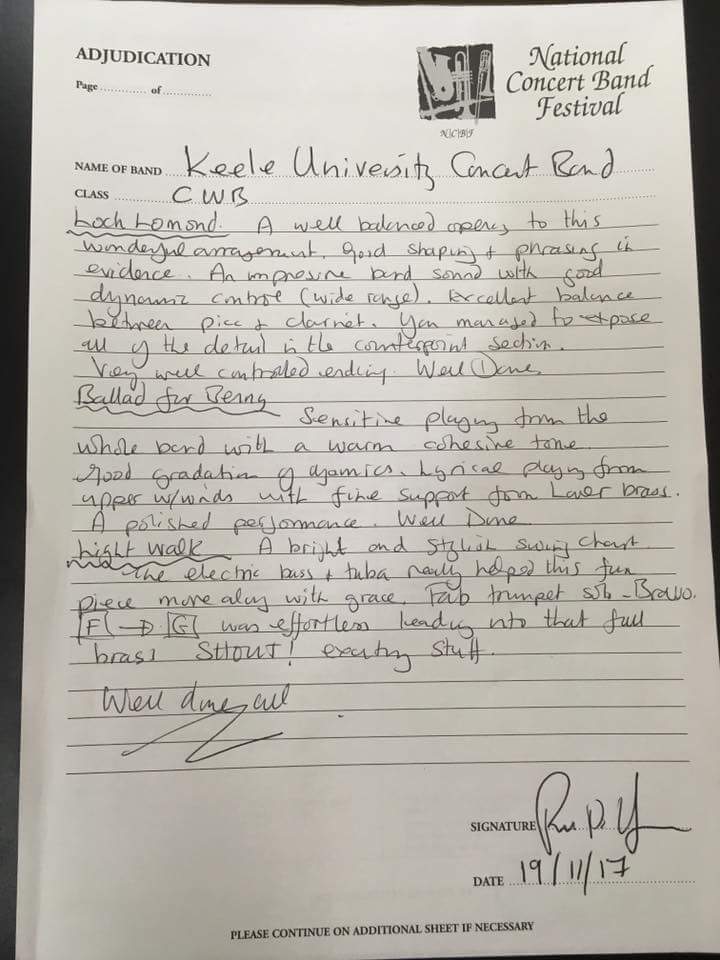 ADJUDICATION
Page ............. of ..............
National
Concert Band
Festival
N|C|B|F
NAME OF BAND Keele University Concert Band
CLASS CWB
Loch Lomond. A well balanced opening to this
wonderful arrangement. Good shaping + phrasing in
evidence. An impressive band sound with good
dynamic control (wide range). Excellent balance
between picc + clarinet. You managed to expose
all of the detail in the counterpoint section.
Very well controlled ending. Well Done
Ballad for Benny
Sensitive playing from the
whole band with a warm cohesive tone.
Good gradation of dynamics. Lyrical playing from
upper w/winds with fine support from Lower brass.
A polished performance. Well Done
Light Walk A bright and stylish swing chart.
The electric bass + tuba really helped this fun
piece move along with grace. Fab trumpet solo - Bravo.
F → G was effortless leading into that full
brass SHOUT! exciting stuff.
Well done all
SIGNATURE
DATE 19/11/17
PLEASE CONTINUE ON ADDITIONAL SHEET IF NECESSARY